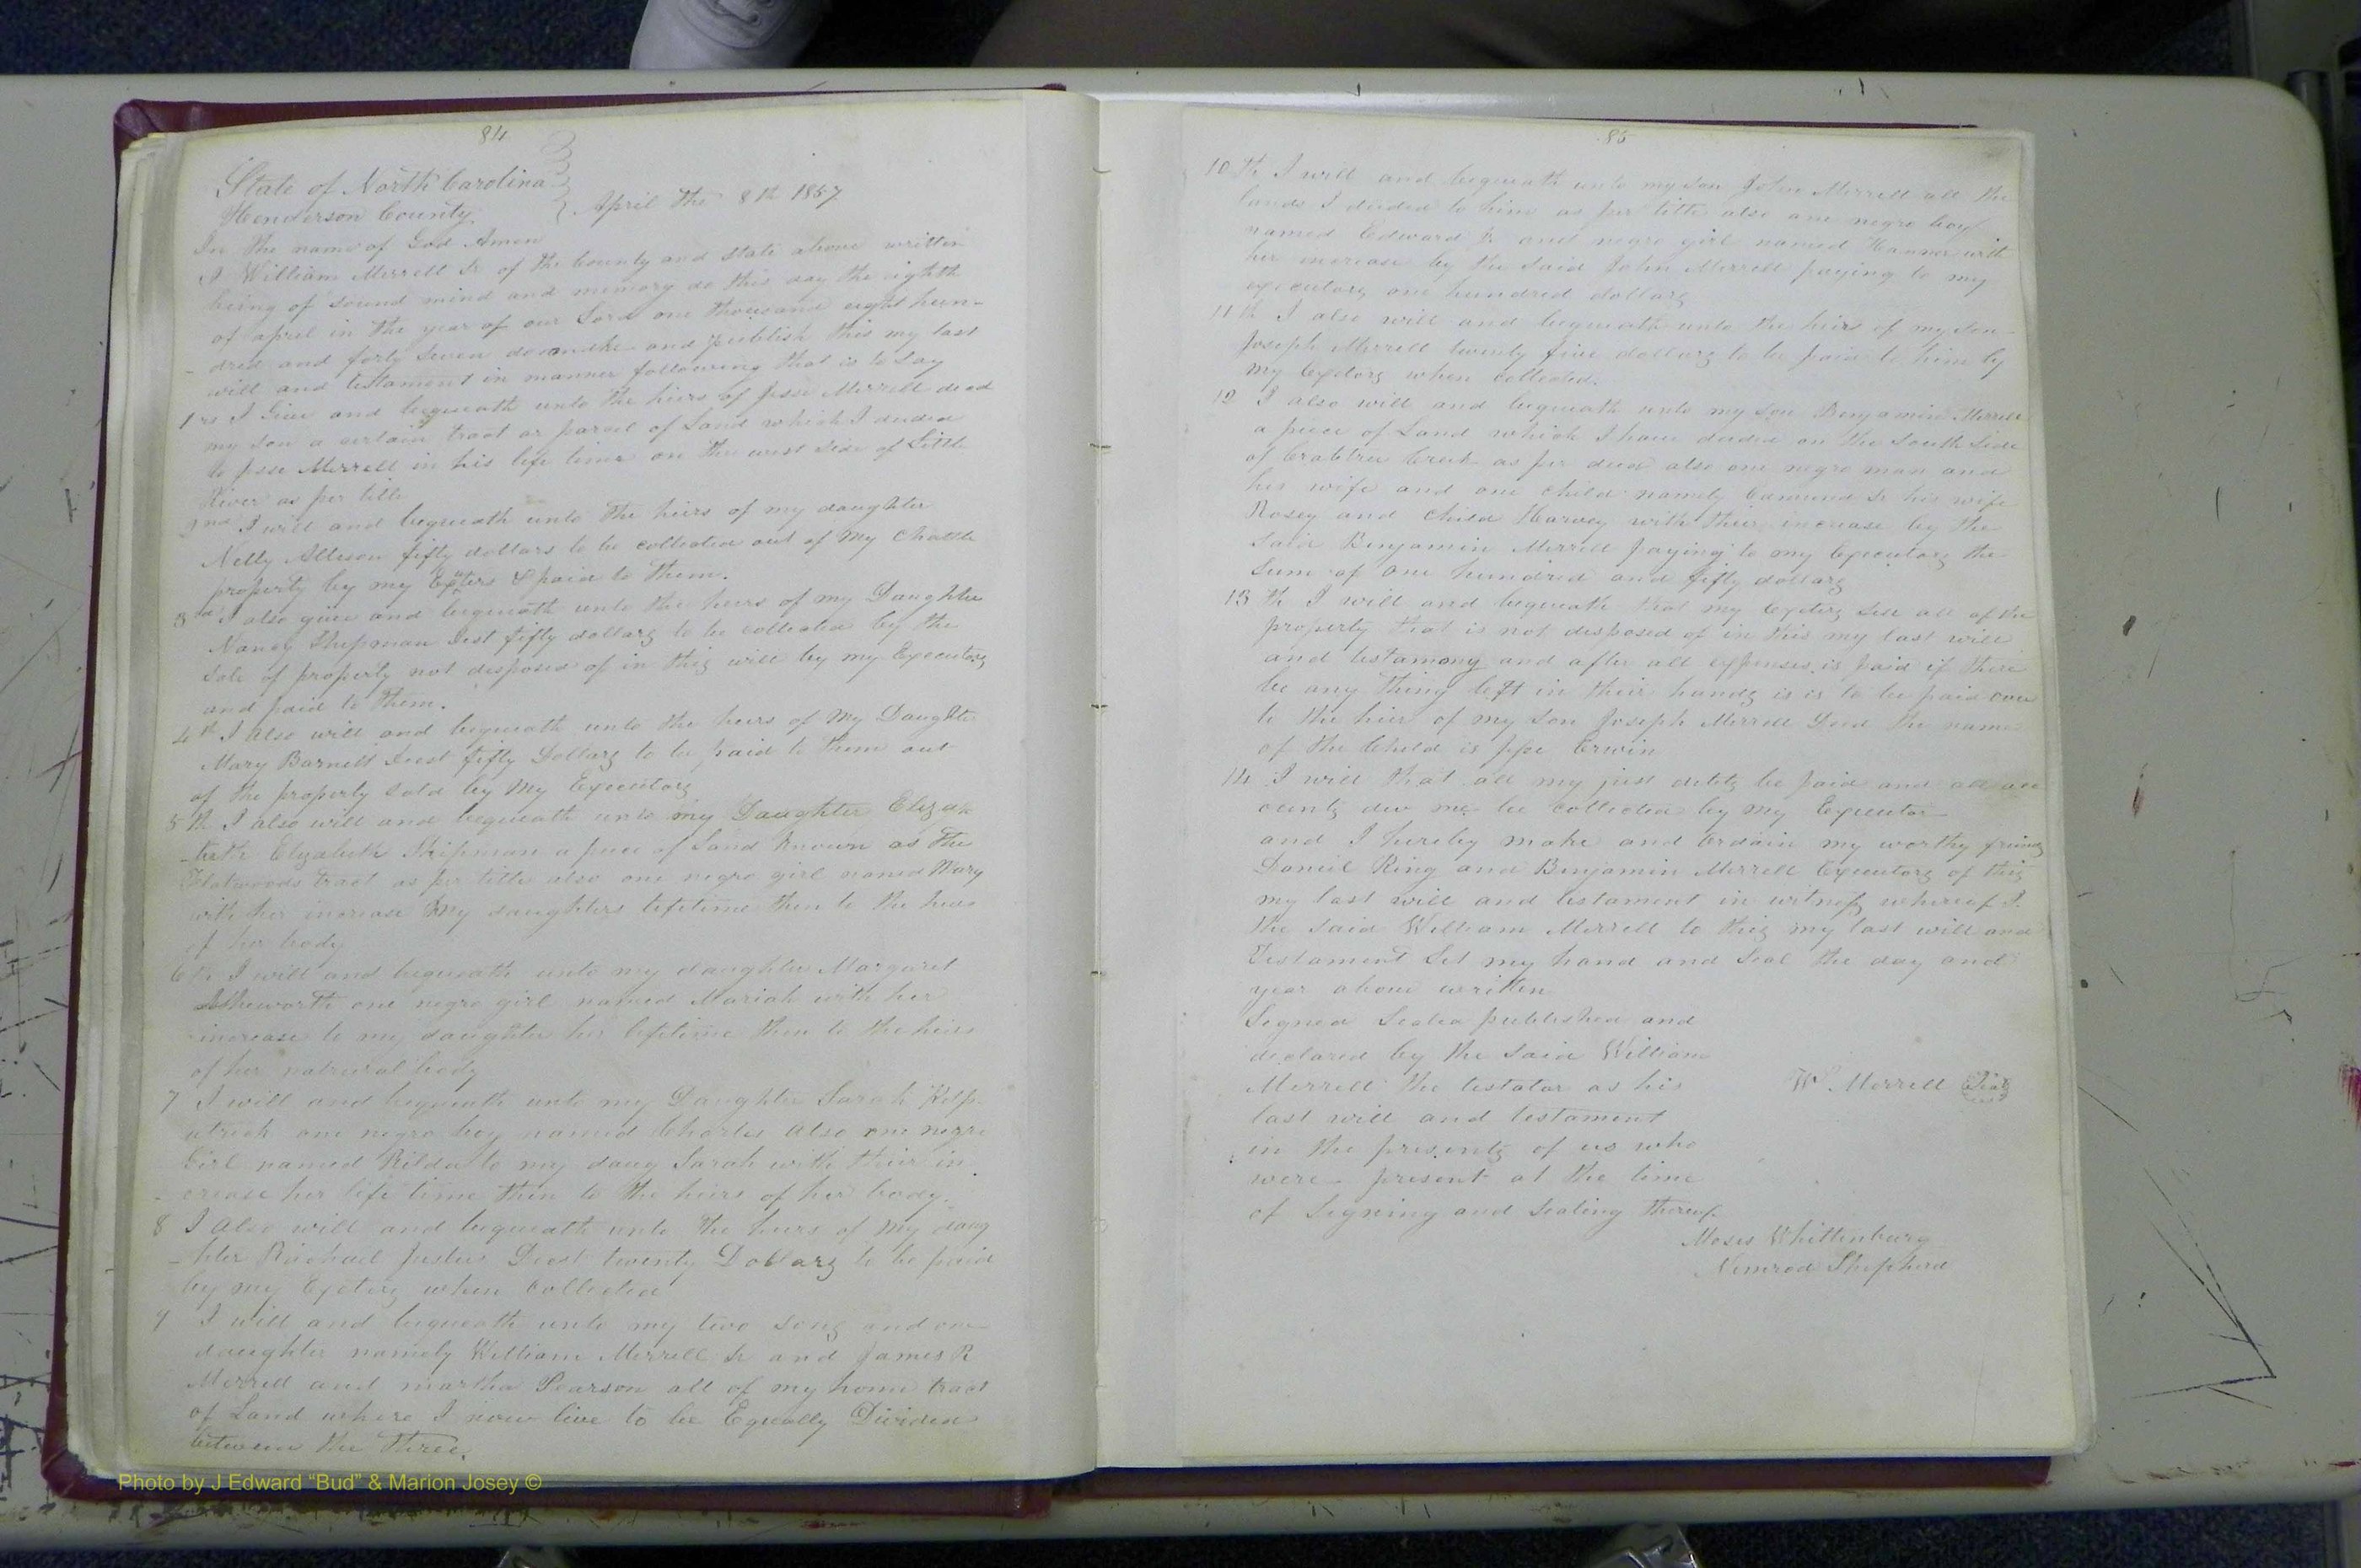 84
State of North Carolina
Henderson County April the 8th 1857
In the name of God Amen
I William Merrell Sr of the County and State above written
being of sound mind and memory do this day the eighth
of april in the year of our Lord one thousand eight hun-
dred and forty seven and publish this my last
will and testament in manner following that is to say
1rs I Give and bequeath unto the heirs of Jesse Merrell decd
my son a certain tract or parcel of Land which I deeded
to Jesse Merrell in his life time on the west side of Little
River as per title
2nd I will and bequeath unto the heirs of my daughter
Nelly Allison fifty dollars to be collected out of my Chattle
property by my & paid to them.
3rd I also give and bequeath unto the heirs of my Daughter
Nancy Shipman Dest fifty dollars to be collected by the
Sale of property not disposed of in this will by my Executors
and paid to them.
4th I Also will and bequeath unto the heirs of My Daughter
Mary Barnett Decst fifty Dollars to be paid to them out
of the property sold by My Executors
5th I also will and bequeath unto my Daughter Elizab
-beth Elizabeth Shipman a piece of Land Known as the
Flatwoods tract as per title also one negro girl named Mary
with her increase my daughters lifetime then to the heirs
of her body
6th I will and bequeath unto my daughter Margaret
Asheworth one negro girl named Mariah with her
increase to my daughter her lifetime then to the heirs
of her natrural body
7 I will and bequeath unto my Daughter Sarah Kilp-
atrick one negro boy named Charles also one negro
Girl named Rilda to my daug Sarah with their in
- crease her life time then to the heirs of her body.
8 I Also will and bequeath unto the heirs of my daug
-hter Rachael Justus Decst twenty Dollars to be paid
by my when collected
9 I will and bequeath unto my two sons and one
daughter namely William Merrell Jr and James R
Merrell and martha Pearson all of my home tract
of Land where I now live to be Equally Divided
between the Three.
85
10th I will and bequeath unto my son John Merrell all the
lands I deeded to him as per title also one negro boy
named Edward Jr and negro girl named Hanna with
her increase by the said John Merrell paying to my
executors one hundred dollars
11th I also will and bequeath unto the heirs of my son
Joseph Merrell twenty five dollars to be paid to him by
my when collected.
12 I also will and bequeath unto my son Benjamin Merrell
a piece of Land which I have deeded on the South Side
of Crabtree Creek as per deed also one negro man and
his wife and one child namely Edmund Sr his wife
Rosey and child Harvey with their increase by the
said Benjamin Merrell paying to my Executors the
sum of one hundred and fifty dollars
13th I will and bequeath that my sell all of the
property that is not disposed of in this my last will
and testamony and after all expenses is paid if there
be any thing left in their hands is is to be paid over
to the heir of my son Joseph Merrell Decd the name
of the Child is Jesse Erwin
14 I will that all my just debts be paid and all acc
ounts due me be collected by my Executor
and I hereby make and ordain my worthy friends
Daneil Ring and Benjamin Merrell Executors of this
my last will and testament in witness whereof I
the said William Merrell to this my last will and
Testament Set my hand and Seal the day and
year above written
Signed Sealed published and
declared by the said William
Merrell the testator as his
last will and testament
in the presents of us who
were present at the time
of Signing and Sealing thereof
W. Merrell Seal
Moses Whittenburg
Nimrod Shepherd
Photo by J Edward “Bud” & Marion Josey ©